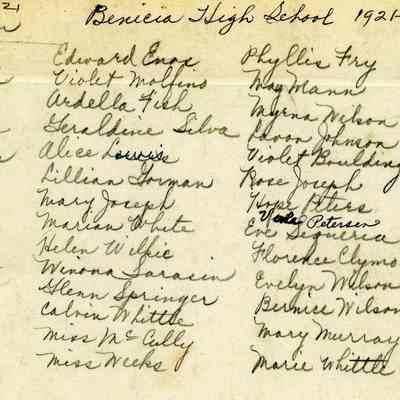 Benicia High School 1921-
Edward Enos
Violet Molfino
Ardella Fish
Geraldine Silva
Alice Lewis
Lillian Gorman
Mary Joseph
Marian White
Helen Wilkie
Winona Sarasin
Glenn Springer
Calvin Whittle
Miss McCully
Miss Weeks
Phyllis Fry
May Mann
Myrna Wilson
Johnson
Violet Boulding
Rose Joseph
Hope Peters
Viola Petersen
Eve Sequeria
Florence Clymo
Evelyn Wilson
Bernice Wilson
Mary Murray
Marie Whittle